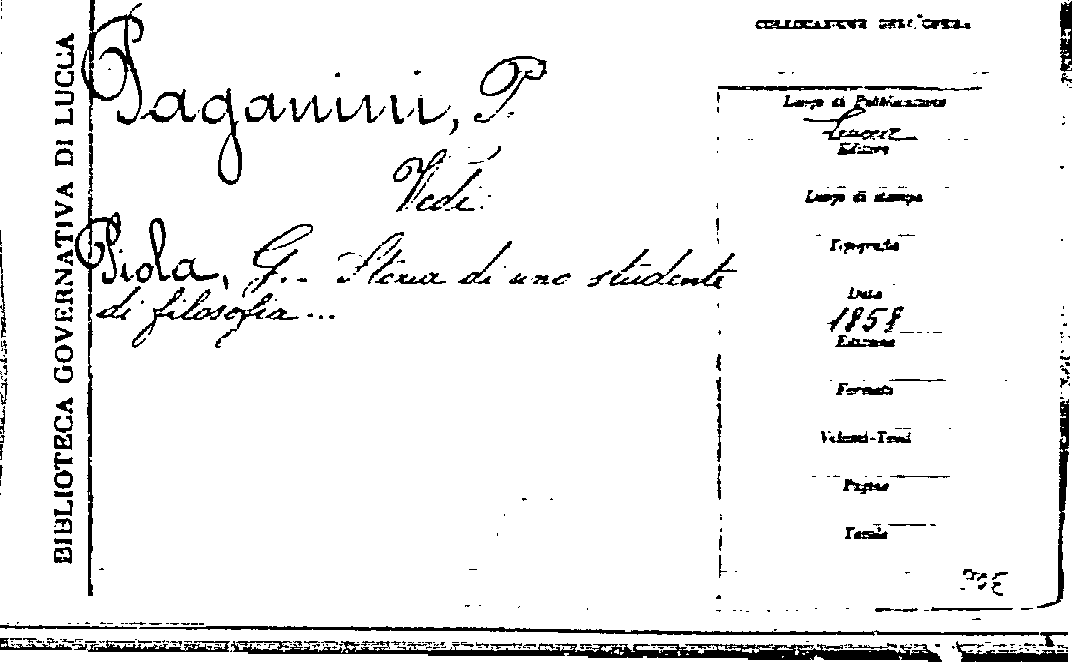 BIBLIOTECA GOVERNATIVA DI LUCCA
Paganini, P.
Vedi:
Piola, G.- Storia di uno studente
di filosofia...
COLLOCAZIONE DELL'OPERA
Luogo di Pubblicazione
Lucca
Editore
Luogo di stampa
Tipografia
Data
1858
Edizione
Formato
Volumi-Tomi
Pagine
Tavole